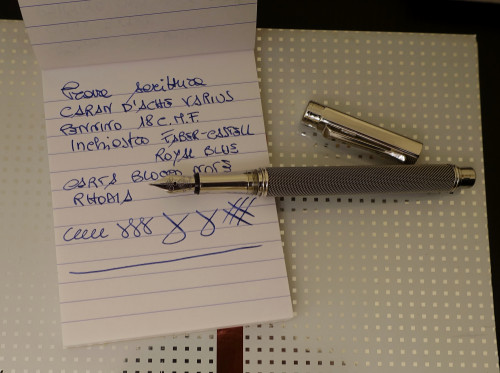 Prova scrittura
CARAN D'ACHE VARIUS
PENNINO 18 C. M.F.
Inchiostro FABER-CASTELL
ROYAL BLUE
CARTA BLOCCO NOTES
RHODIA